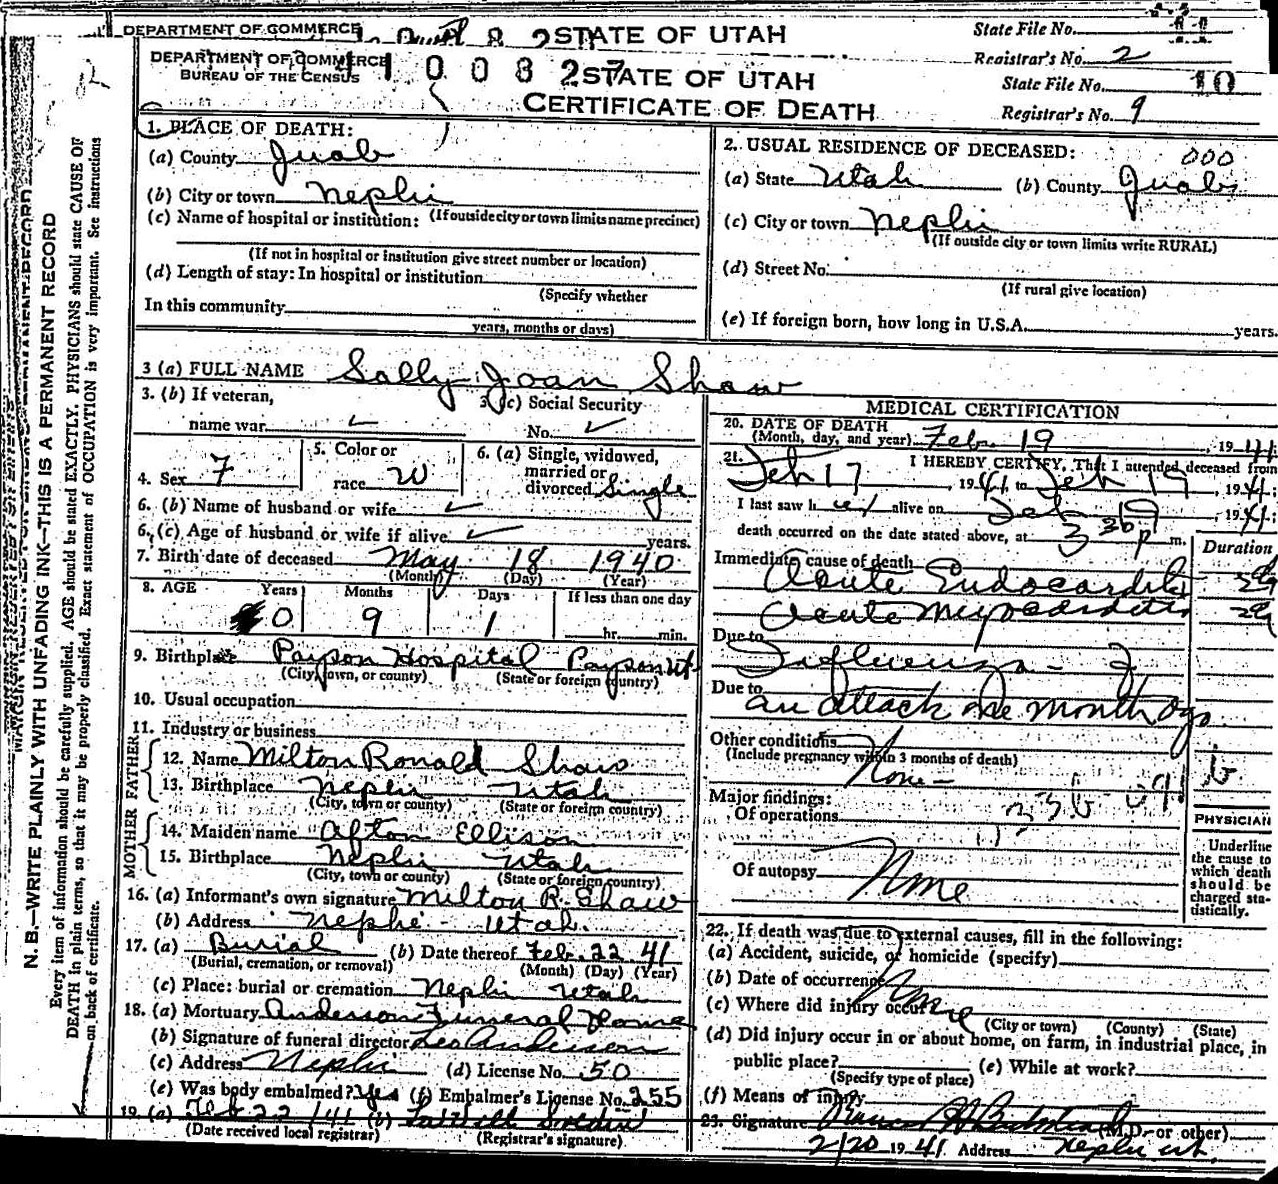 DEPARTMENT OF COMMERCE
STATE OF UTAH
State File No. 11
Registrar's No. 2
DEPARTMENT OF COMMERCE
BUREAU OF THE CENSUS
STATE OF UTAH
CERTIFICATE OF DEATH
State File No. 10
Registrar's No. 9
N. B.—WRITE PLAINLY WITH UNFADING INK—THIS IS A PERMANENT RECORD
Every item of information should be carefully supplied. AGE should be stated EXACTLY. PHYSICIANS should state CAUSE OF
DEATH in plain terms, so that it may be properly classified. Exact statement of OCCUPATION is very important. See instructions
on back of certificate.
1. PLACE OF DEATH:
(a) County Juab
(b) City or town Nephi
(If outside city or town limits name precinct)
(c) Name of hospital or institution:
(If not in hospital or institution give street number or location)
(d) Length of stay: In hospital or institution
(Specify whether
In this community
years, months or days)
2. USUAL RESIDENCE OF DECEASED:
000
(a) State Utah (b) County Juab
(c) City or town Nephi
(If outside city or town limits write RURAL)
(d) Street No.
(If rural give location)
(e) If foreign born, how long in U.S.A. years.
3 (a) FULL NAME Sally Joan Shaw
3. (b) If veteran,
name war
3 (c) Social Security
No.
4. Sex F
5. Color or
race W
6. (a) Single, widowed,
married or
divorced Single
6. (b) Name of husband or wife
6. (c) Age of husband or wife if alive years.
7. Birth date of deceased May 18 1940
(Month) (Day) (Year)
8. AGE Years Months Days If less than one day
0 9 1 hr. min.
9. Birthplace Payson Hospital Payson Ut
(City, town, or county) (State or foreign country)
10. Usual occupation
11. Industry or business
FATHER
12. Name Milton Ronald Shaw
13. Birthplace Nephi Utah
(City, town or county) (State or foreign country)
MOTHER
14. Maiden name Afton Ellison
15. Birthplace Nephi Utah
(City, town or county) (State or foreign country)
16. (a) Informant's own signature Milton R. Shaw
(b) Address Nephi - Utah.
17. (a) Burial (b) Date thereof Feb. 22 41
(Burial, cremation, or removal) (Month) (Day) (Year)
(c) Place: burial or cremation Nephi Utah
18. (a) Mortuary Anderson Funeral Home
(b) Signature of funeral director Leo Anderson
(c) Address Nephi (d) License No. 50
(e) Was body embalmed? Yes (f) Embalmer's License No. 255
19. (a) Feb 22 1941 (b)
(Date received local registrar) (Registrar's signature)
MEDICAL CERTIFICATION
20. DATE OF DEATH
(Month, day, and year) Feb. 19, 1941
21. I HEREBY CERTIFY, That I attended deceased from
Feb 17, 1941, to Feb 19, 1941;
I last saw her alive on Feb 19, 1941;
death occurred on the date stated above, at 3 30 p m.
Duration
Immediate cause of death
Acute Endocarditis
Acute Myocarditis
Due to
Influenza -
Due to
an attack one month ago
Other conditions
(Include pregnancy within 3 months of death)
None -
Major findings:
Of operations
Of autopsy None
PHYSICIAN
Underline
the cause to
which death
should be
charged sta-
tistically.
22. If death was due to external causes, fill in the following:
(a) Accident, suicide, or homicide (specify)
(b) Date of occurrence
(c) Where did injury occur? None
(City or town) (County) (State)
(d) Did injury occur in or about home, on farm, in industrial place, in
public place? (e) While at work?
(Specify type of place)
(f) Means of injury
23. Signature (M.D. or other)
2/20 1941 Address Nephi Ut.